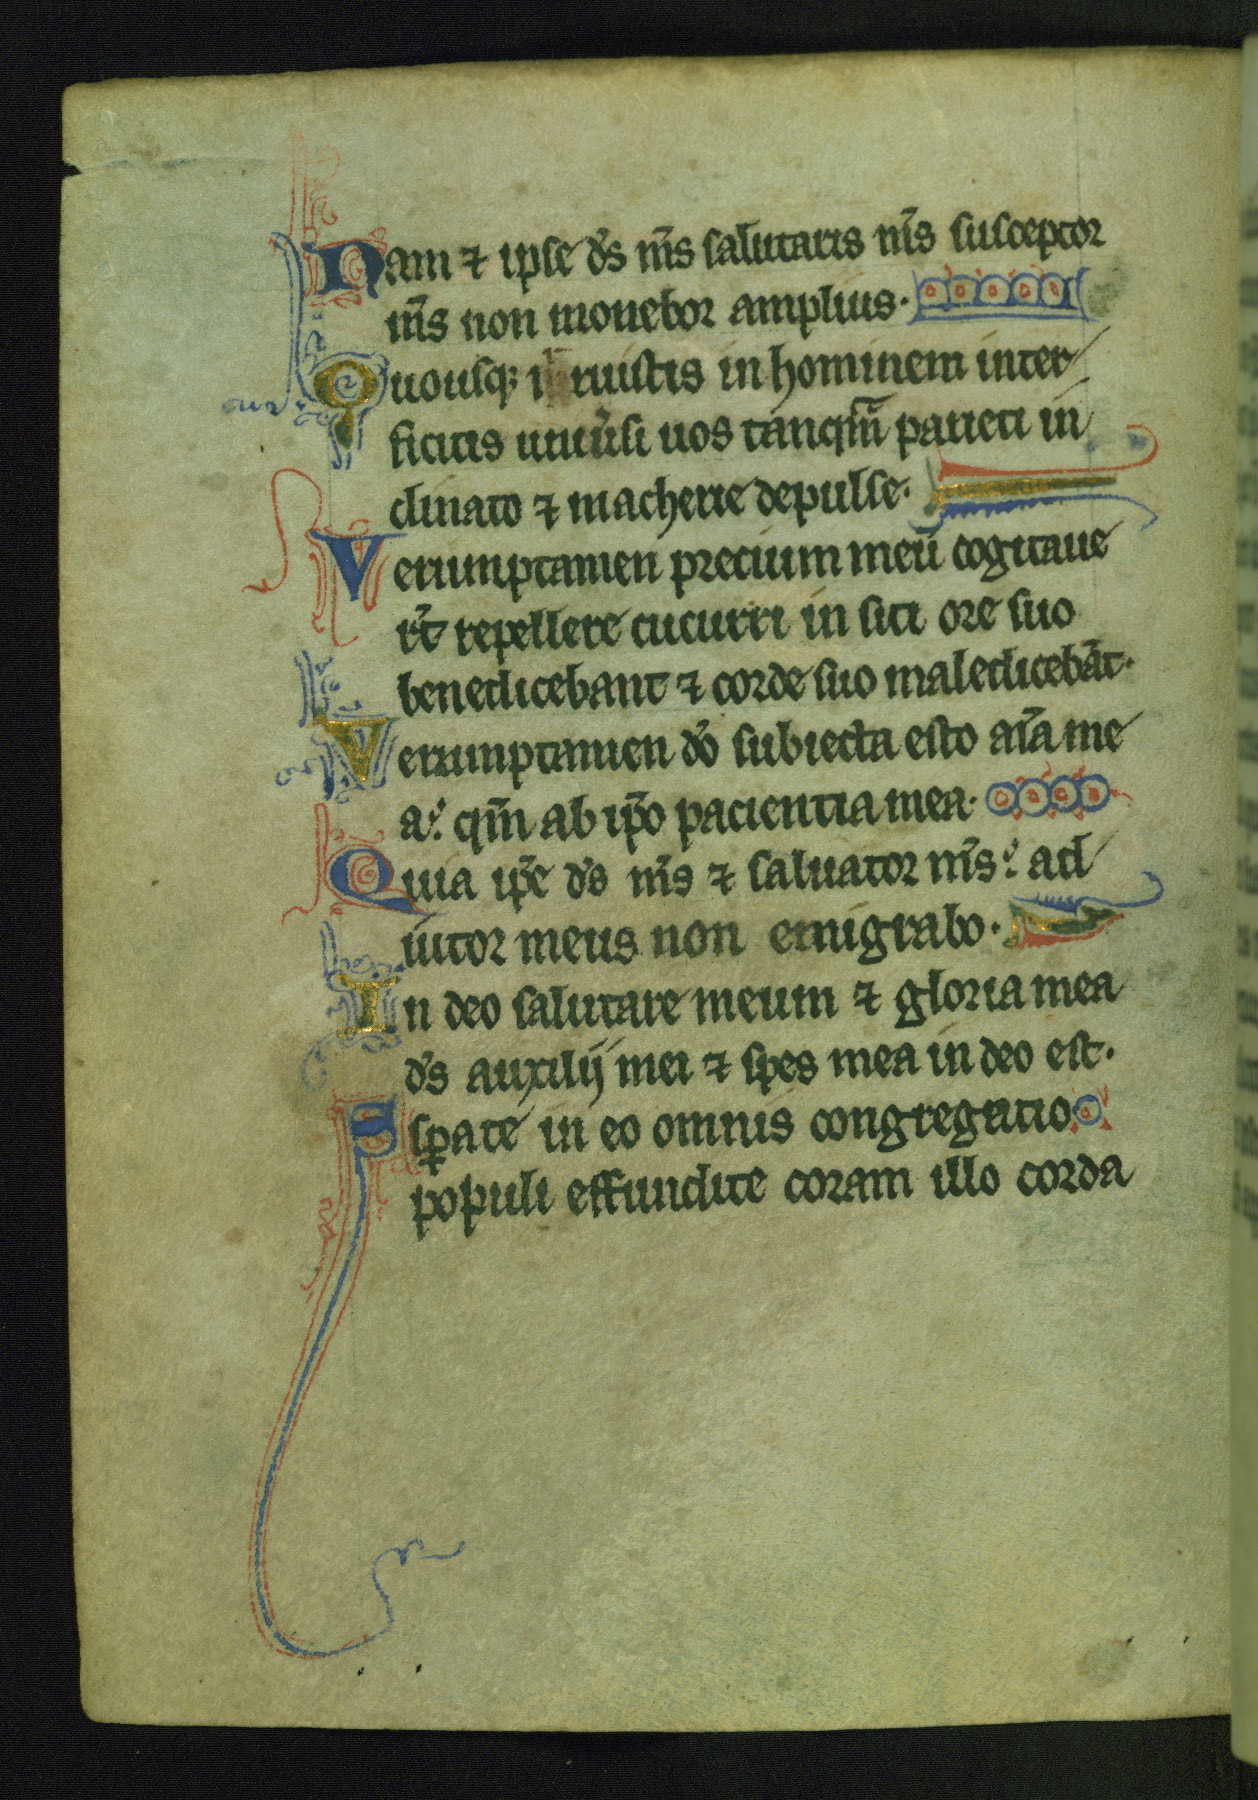 Nam ⁊ ipse ds̄ nr̄s salutaris nr̄s susceptor
nr̄s non mouebor amplius·
Quousqꝫ i ruistis in hominem inter
ficitis uniu̾si uos tanqm̄ parieti in
clinato ⁊ macherie depulse·
Verumptamen precium meū cogitaue
rt̄ repellere cucurri in siti ore suo
benedicebant ⁊ corde suo maledicebāt·
Verumptamen dō subiecta esto aīa me
a: qm̄ ab ip̄o paciencia mea·
Quia ip̄e ds̄ nr̄s ⁊ saluator nr̄s: ad
iutor meus non emigrabo·
In deo salutare meum ⁊ gloria mea
ds̄ auxilij mei ⁊ spes mea in deo est·
Sꝑate in eo omnis congregatio
populi effundite coram illo corda